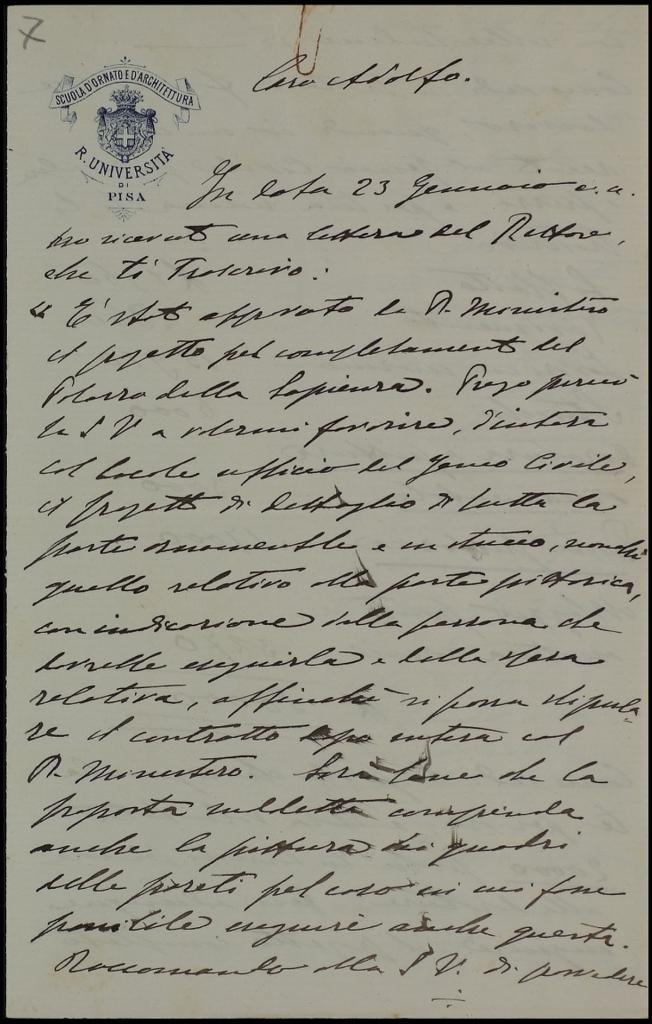 7
SCUOLA D'ORNATO E D'ARCHITETTURA
R. UNIVERSITÀ
DI
PISA
Caro Adolfo.
In data 23 Gennaio c. a.
ho ricevuto una lettera del Rettore,
che ti trascrivo:
"È stato approvato da R. Ministero
il progetto pel completamento del
Palazzo della Sapienza. Prego perciò
la S V a volermi favorire, d'intesa
col locale ufficio del Genio Civile,
il progetto di dettaglio di tutta la
parte ornamentale e in stucco, nonchè
quello relativo alla parte pittorica,
con indicazione della persona che
dovrebbe eseguirla e della spesa
relativa, affinchè si possa stipula-
re il contratto dopo intesa col
R. Ministero. Sarà bene che la
proposta suddetta comprenda
anche la pittura dei quadri
delle pareti pel caso in cui fosse
possibile eseguire anche questa.
Raccomando alla S V. di